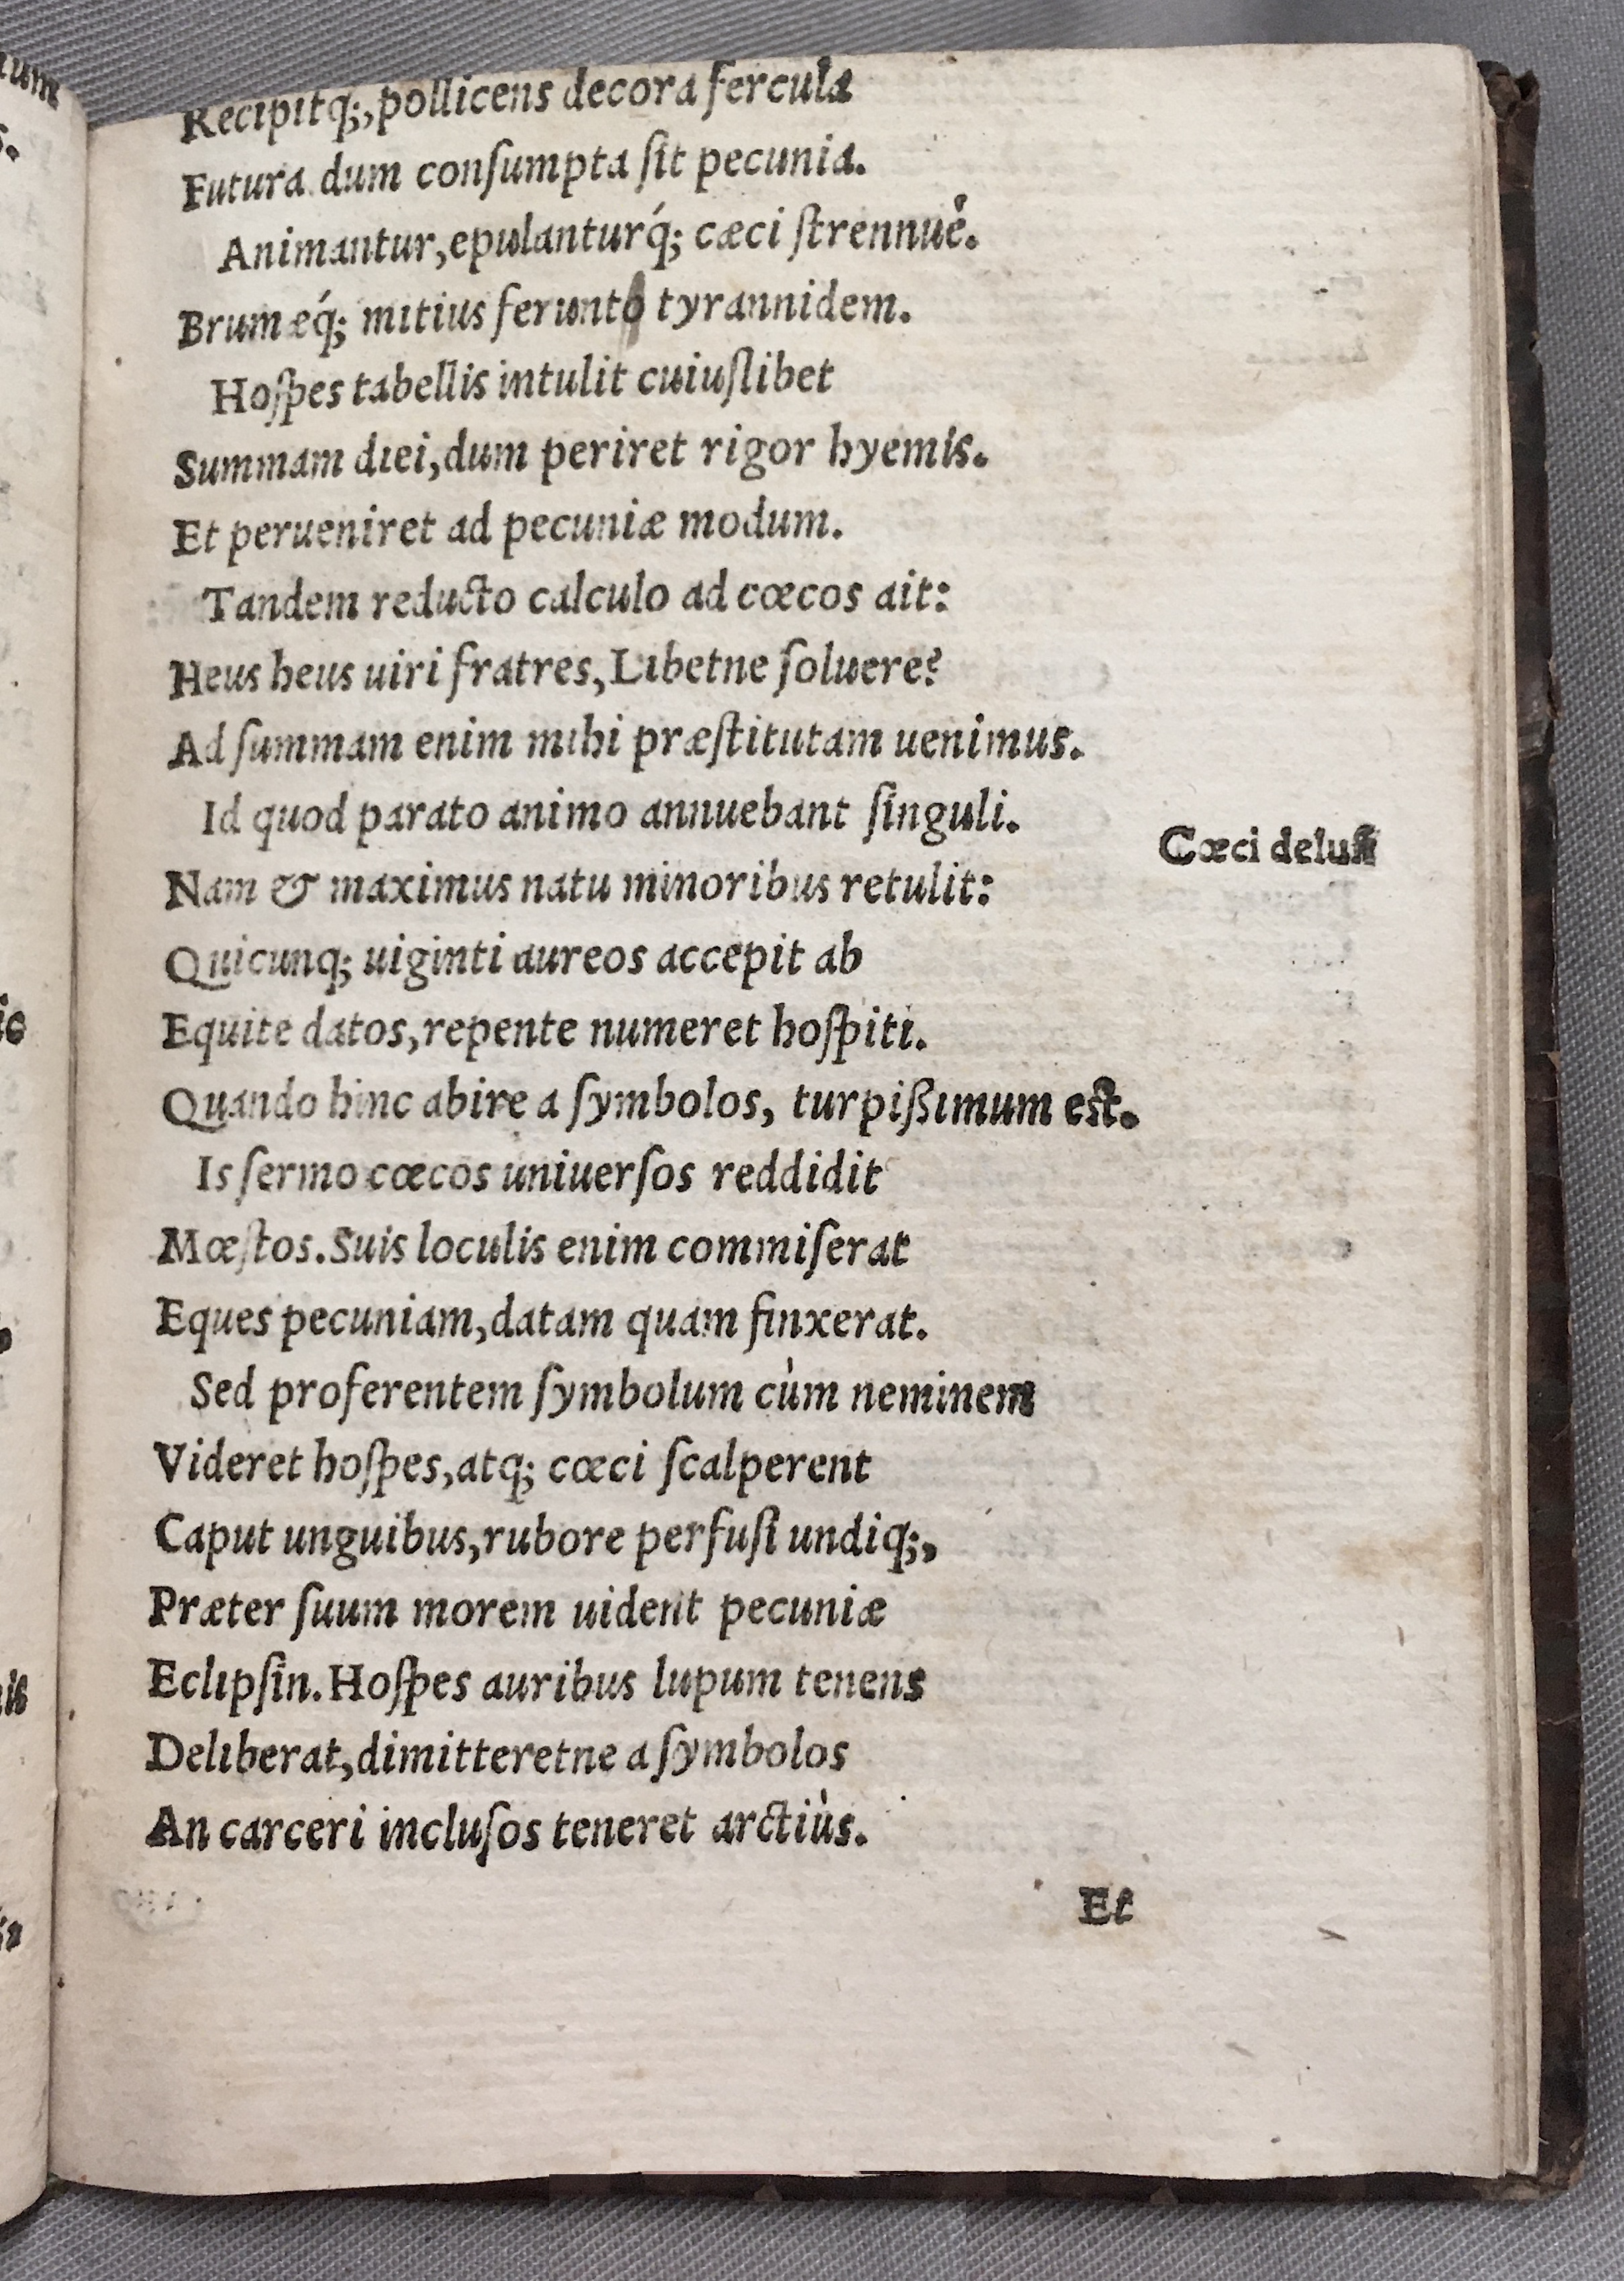 Recipitq;, pollicens decora fercula
Futura dum conſumpta ſit pecunia.
Animantur, epulanturq́; cæci ſtrennuè.
Brumæq́; mitius ferunto tyrannidem.
Hoſpes tabellis intulit cuiuſlibet
Summam diei, dum periret rigor hyemis.
Et perueniret ad pecuniæ modum.
Tandem reducto calculo ad cœcos ait:
Heus heus uiri fratres, Libetne ſoluere?
Ad ſummam enim mihi præſtitutam uenimus.
Id quod parato animo annuebant ſinguli.
Cæci deluſi
Nam & maximus natu minoribus retulit:
Quicunq; uiginti aureos accepit ab
Equite datos, repente numeret hoſpiti.
Quando hinc abire a ſymbolos, turpißimum eſt.
Is ſermo cœcos uniuerſos reddidit
Mœſtos. Suis loculis enim commiſerat
Eques pecuniam, datam quam finxerat.
Sed proferentem ſymbolum cùm neminem
Videret hoſpes, atq; cœci ſcalperent
Caput unguibus, rubore perfuſi undiq;,
Præter ſuum morem uident pecuniæ
Eclipſin. Hoſpes auribus lupum tenens
Deliberat, dimitteretne a ſymbolos
An carceri incluſos teneret arctiùs.
Et